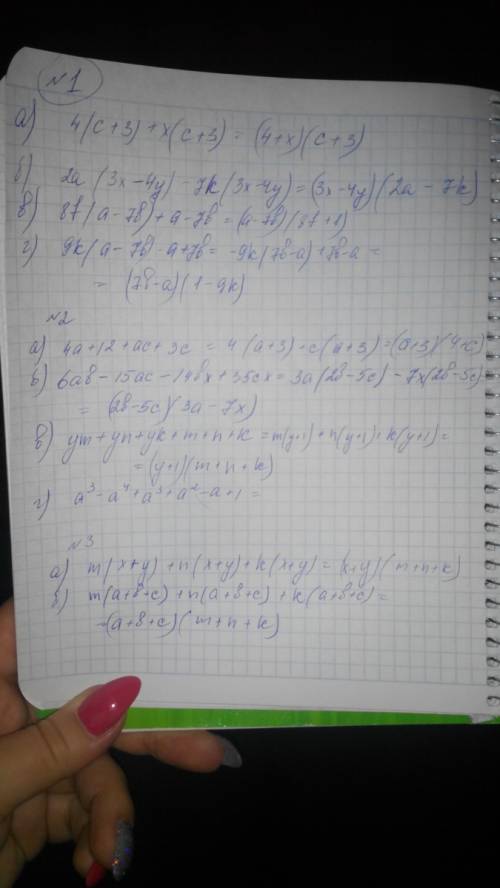 №1
а) 4(c+3)+x(c+3) = (4+x)(c+3)
б) 2a(3x-4y) - 7k(3x-4y) = (3x-4y)(2a-7k)
в) 8t(a-7b)+a-7b = (a-7b)(8t+1)
г) 9k(a-7b)-a+7b = -9k(7b-a)+7b-a =
= (7b-a)(1-9k)
№2
а) 4a+12+ac+3c = 4(a+3)+c(a+3) = (a+3)(4+c)
б) 6ab-15ac-14bx+35cx = 3a(2b-5c)-7x(2b-5c)
= (2b-5c)(3a-7x)
в) ym+yn+yk+m+n+k = m(y+1)+n(y+1)+k(y+1) =
= (y+1)(m+n+k)
г) -a⁴+a³+a²-a+1 =
№3
а) m(x+y)+n(x+y)+k(x+y) = (x+y)(m+n+k)
б) m(a+b+c)+n(a+b+c)+k(a+b+c) =
=(a+b+c)(m+n+k)